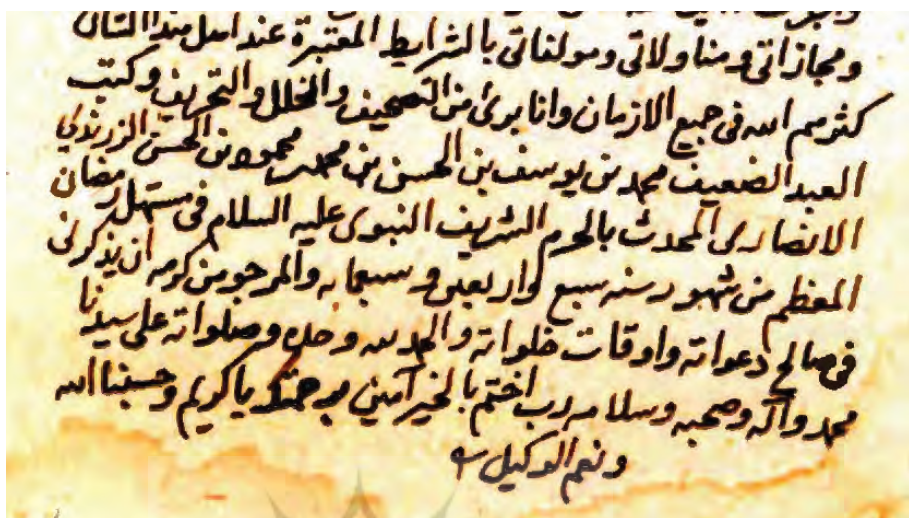 ومجازاتي ومناولاتي ومولفاتي بالشرايط المعتبرة عند اهل هذا الشان
كثرهم الله في جميع الازمان وانا برئ من التصحيف والخلل والتحريف وكتب
العبد الضعيف محمد بن يوسف بن الحسن بن محمد بن محمود بن الحسن الزرندي
الانصاري المحدث بالحرم الشريف النبوي عليه السلام في مستهل رمضان
المعظم من شهور سنه سبع واربعين وسبعمايه والمرجو من كرمه ان يذكرني
في صالح دعواته واوقات خلواته والحمد لله وحده وصلواته على سيدنا
محمد واله وصحبه وسلامه رب اختم بالخير آمين برحمتك يا كريم وحسبنا الله
ونعم الوكيل